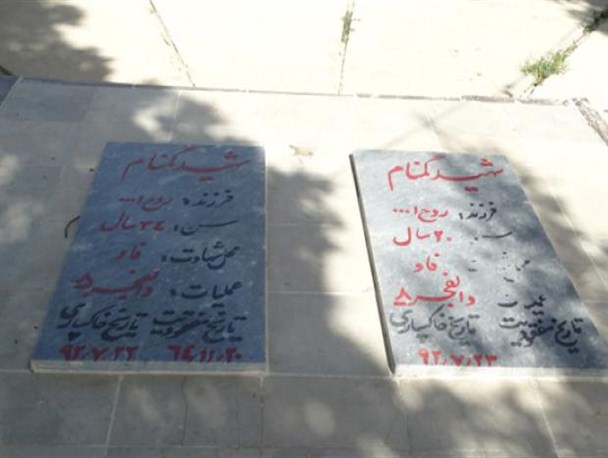 شهید گمنام
فرزند: روح ا...
سن: ۲۴ سال
محل شهادت: فاو
عملیات: والفجر ۸
تاریخ مفقودیت تاریخ خاکسپاری
۶۴،۱۱،۲۰ ۹۲،۷،۲۳
شهید گمنام
فرزند: روح ا...
۲۰ سال
فاو
والفجر ۸
تاریخ مفقودیت تاریخ خاکسپاری
۹۲،۷،۲۳